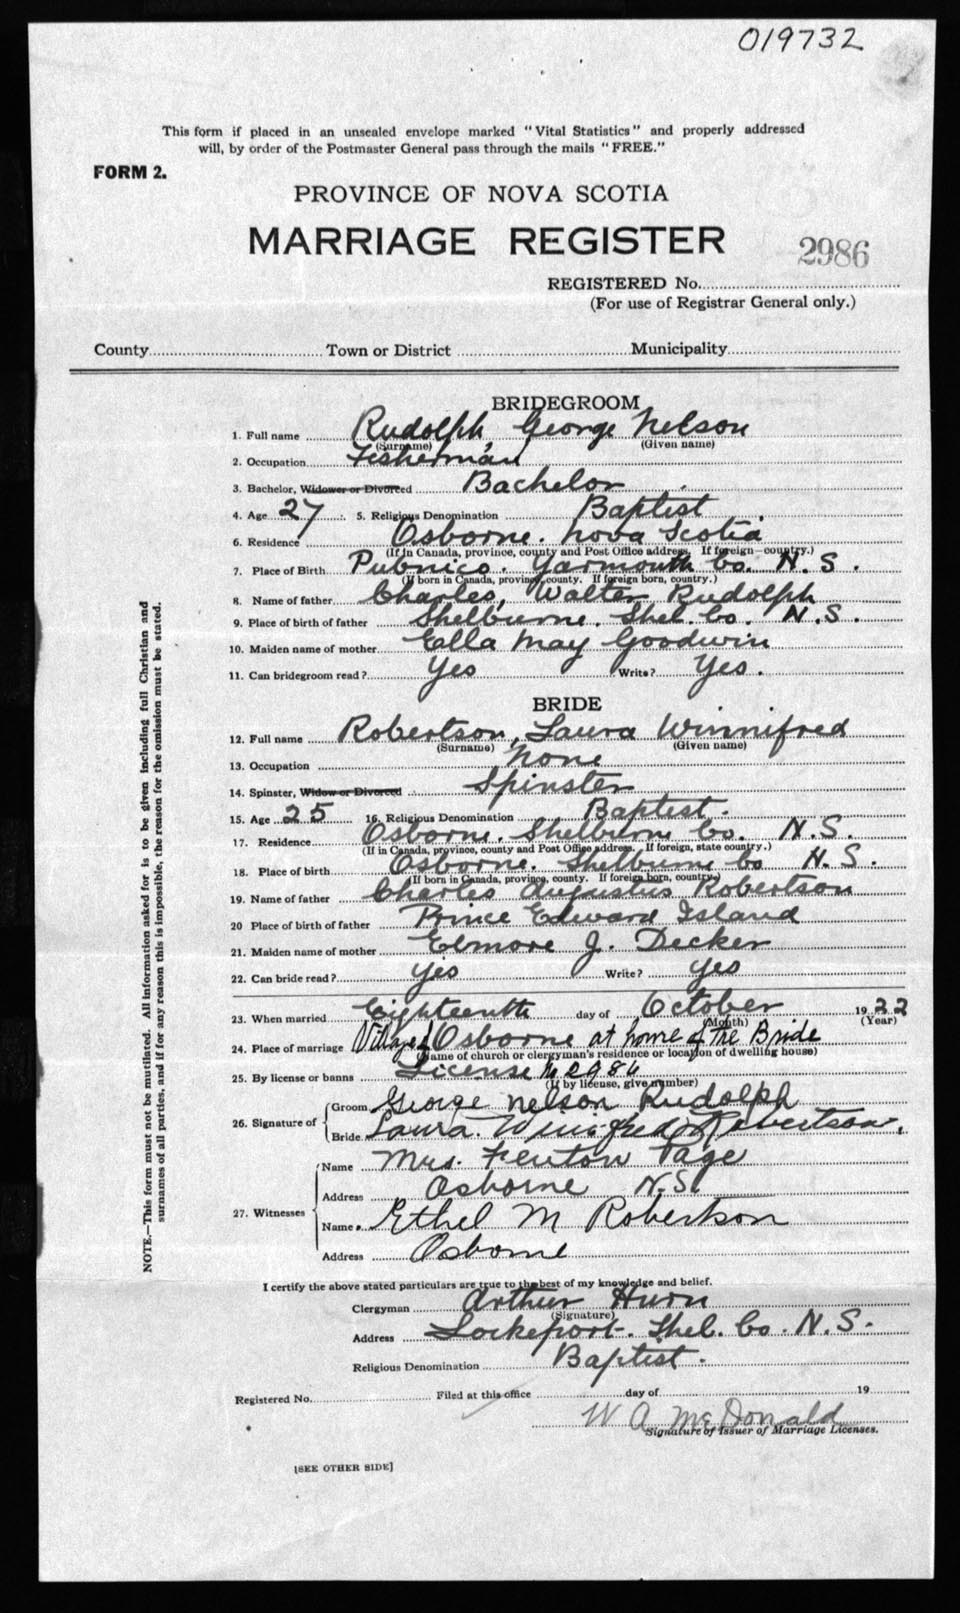 019732
This form if placed in an unsealed envelope marked "Vital Statistics" and properly addressed
will, by order of the Postmaster General pass through the mails "FREE."
FORM 2.
PROVINCE OF NOVA SCOTIA
MARRIAGE REGISTER
2986
REGISTERED No.
(For use of Registrar General only.)
County Town or District Municipality
BRIDEGROOM
1. Full name Rudolph, George Nelson
(Surname) (Given name)
2. Occupation Fisherman
3. Bachelor, Widower or Divorced Bachelor
4. Age 27 5. Religious Denomination Baptist
6. Residence Osborne. Nova Scotia
(If in Canada, province, county and Post Office address. If foreign—country.)
7. Place of Birth Pubnico. Yarmouth Co. N.S.
(If born in Canada, province, county. If foreign born, country.)
8. Name of father Charles, Walter Rudolph
9. Place of birth of father Shelburne. Shel. Co. N.S.
10. Maiden name of mother Ella May Goodwin
11. Can bridegroom read? Yes Write? Yes.
BRIDE
12. Full name Robertson, Laura Winnifred
(Surname) (Given name)
13. Occupation None
14. Spinster, Widow or Divorced Spinster
15. Age 25 16. Religious Denomination Baptist.
17. Residence Osborne. Shelburne Co. N.S.
(If in Canada, province, county and Post Office address. If foreign, state country.)
18. Place of birth Osborne. Shelburne Co N.S.
(If born in Canada, province, county. If foreign born, country)
19. Name of father Charles Augustus Robertson
20 Place of birth of father Prince Edward Island
21. Maiden name of mother Elmore J. Decker
22. Can bride read? yes Write? yes
23. When married Eighteenth day of October 1922
(Month) (Year)
24. Place of marriage Village of Osborne at home of the Bride
(Name of church or clergyman's residence or location of dwelling house)
25. By license or banns License No 2986
(If by license, give number)
26. Signature of
Groom George Nelson Rudolph
Bride Laura Winnifred Robertson.
27. Witnesses
Name Mrs. Fenton Page
Address Osborne N.S.
Name Ethel M Robertson
Address Osborne
I certify the above stated particulars are true to the best of my knowledge and belief.
Clergyman Arthur Hurn
(Signature)
Address Lockeport. Shel. Co. N.S.
Religious Denomination Baptist.
Registered No. Filed at this office day of 19
W A McDonald
Signature of Issuer of Marriage Licenses.
[SEE OTHER SIDE]
NOTE.—This form must not be mutilated. All information asked for is to be given including full Christian and
surnames of all parties, and if for any reason this is impossible, the reason for the omission must be stated.